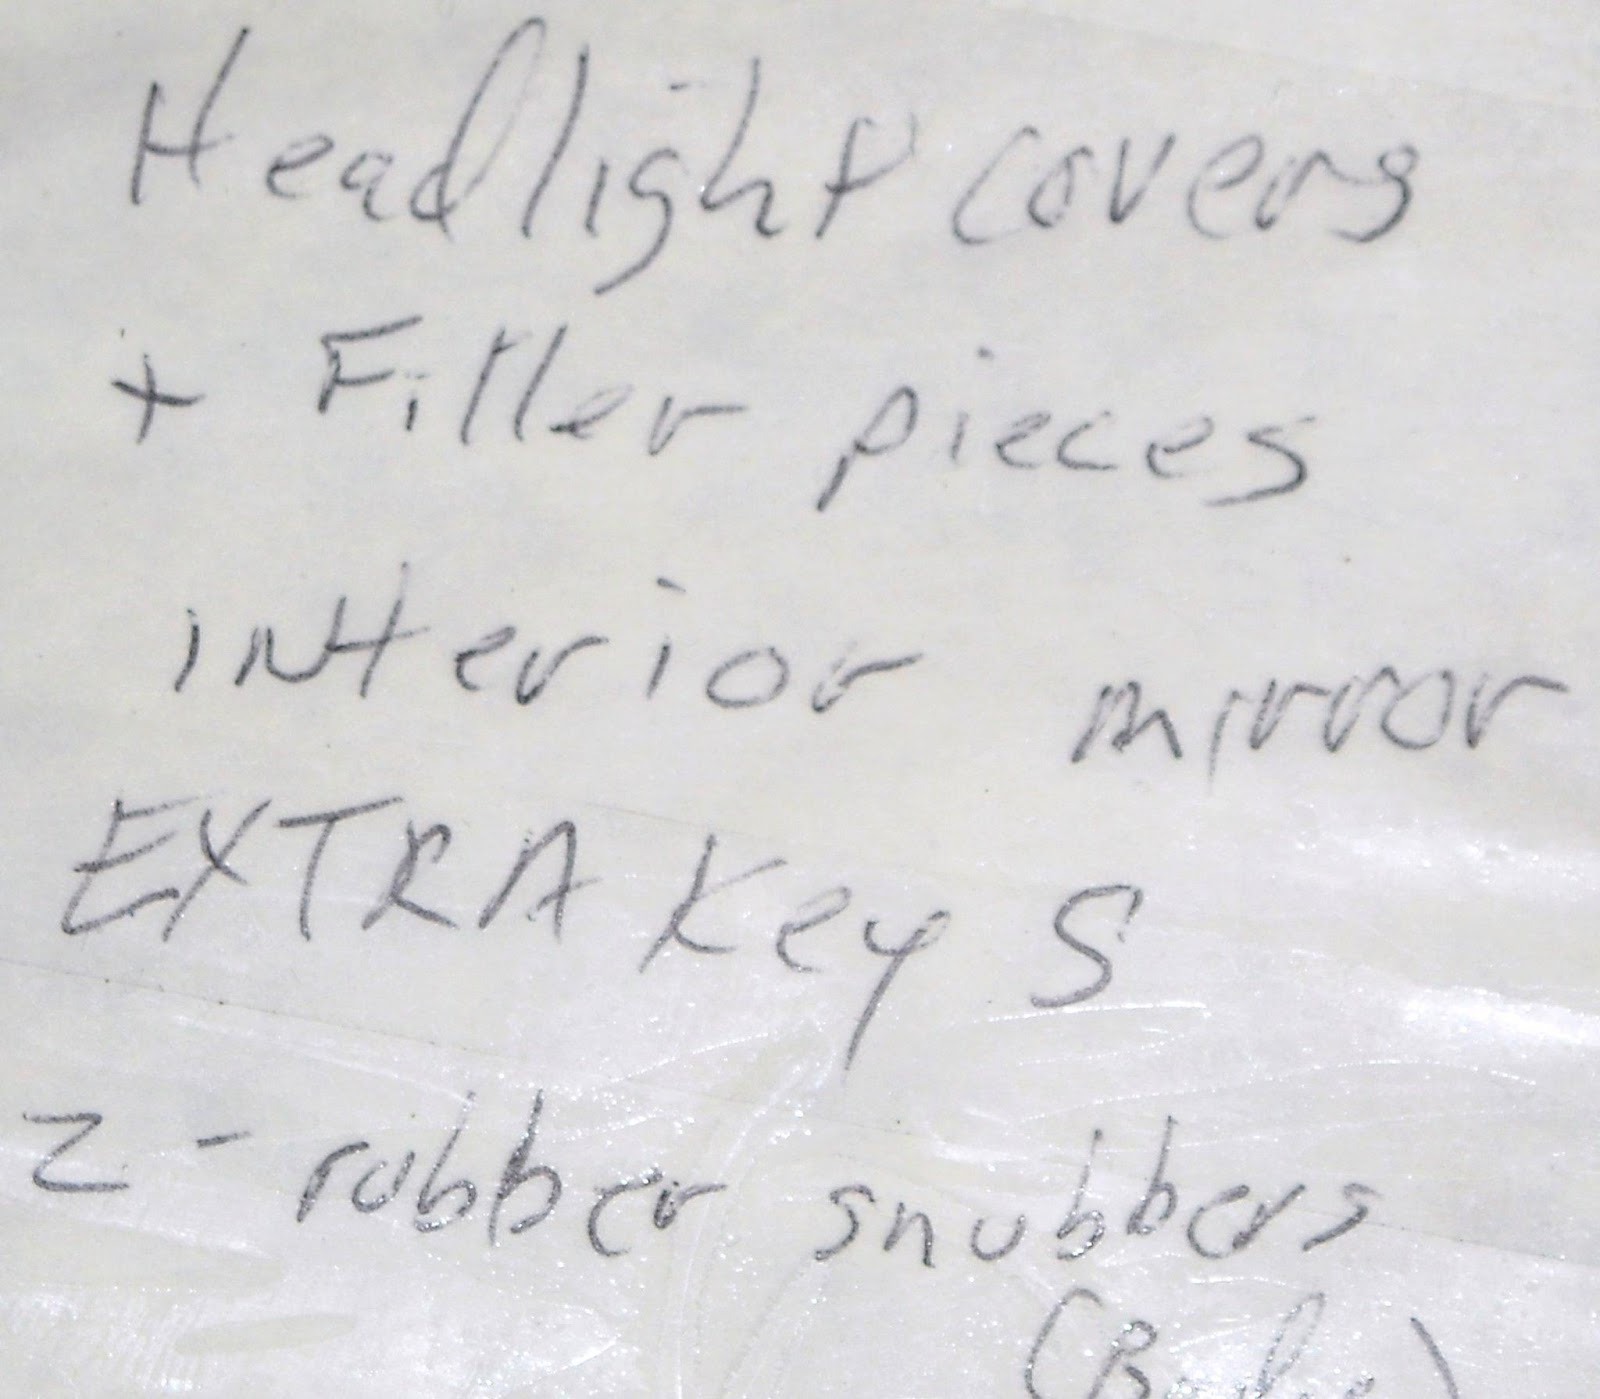 Headlight covers
+ Filler pieces
interior mirror
EXTRA Keys
2 - rubber snubbers